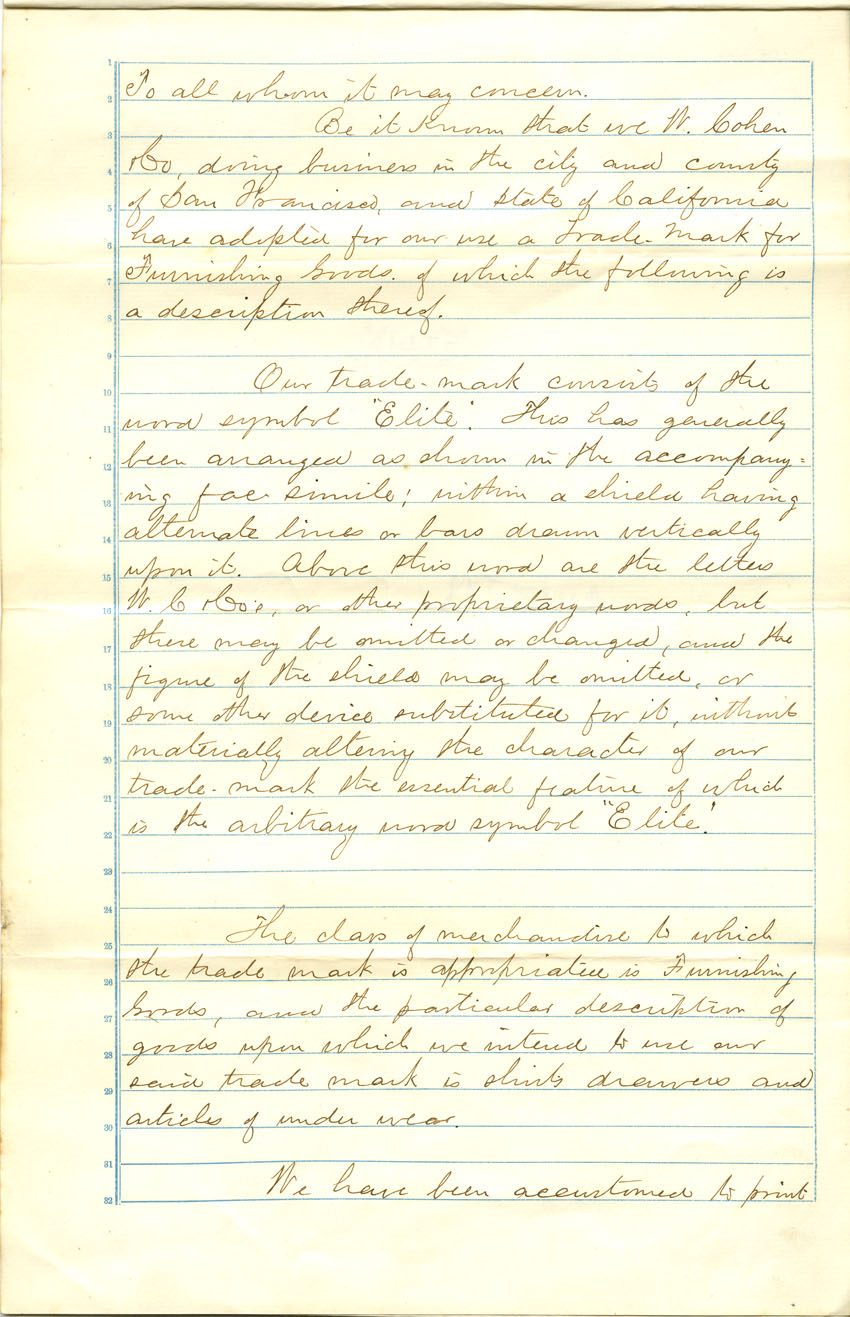 To all whom it may concern.
Be it Known that we W. Cohen
& Co, doing business in the city and county
of San Francisco, and state of California
have adopted for our use a Trade-Mark for
Furnishing Goods. of which the following is
a description thereof.
Our trade-mark consists of the
word symbol "Elite". This has generally
been arranged as shown in the accompany=
ing fac simile; within a shield having
alternate lines or bars drawn vertically
upon it. Above this word are the letters
W. C & Co's, or other proprietary words, but
these may be omitted or changed, and the
figure of the shield may be omitted, or
some other device substituted for it, without
materially altering the character of our
trade-mark the essential feature of which
is the arbitrary word symbol "Elite".
The class of merchandise to which
the trade mark is appropriated is Furnishing
Goods, and the particular description of
goods upon which we intend to use our
said trade mark is shirts drawers and
articles of under wear.
We have been accustomed to print
1
2
3
4
5
6
7
8
9
10
11
12
13
14
15
16
17
18
19
20
21
22
23
24
25
26
27
28
29
30
31
32